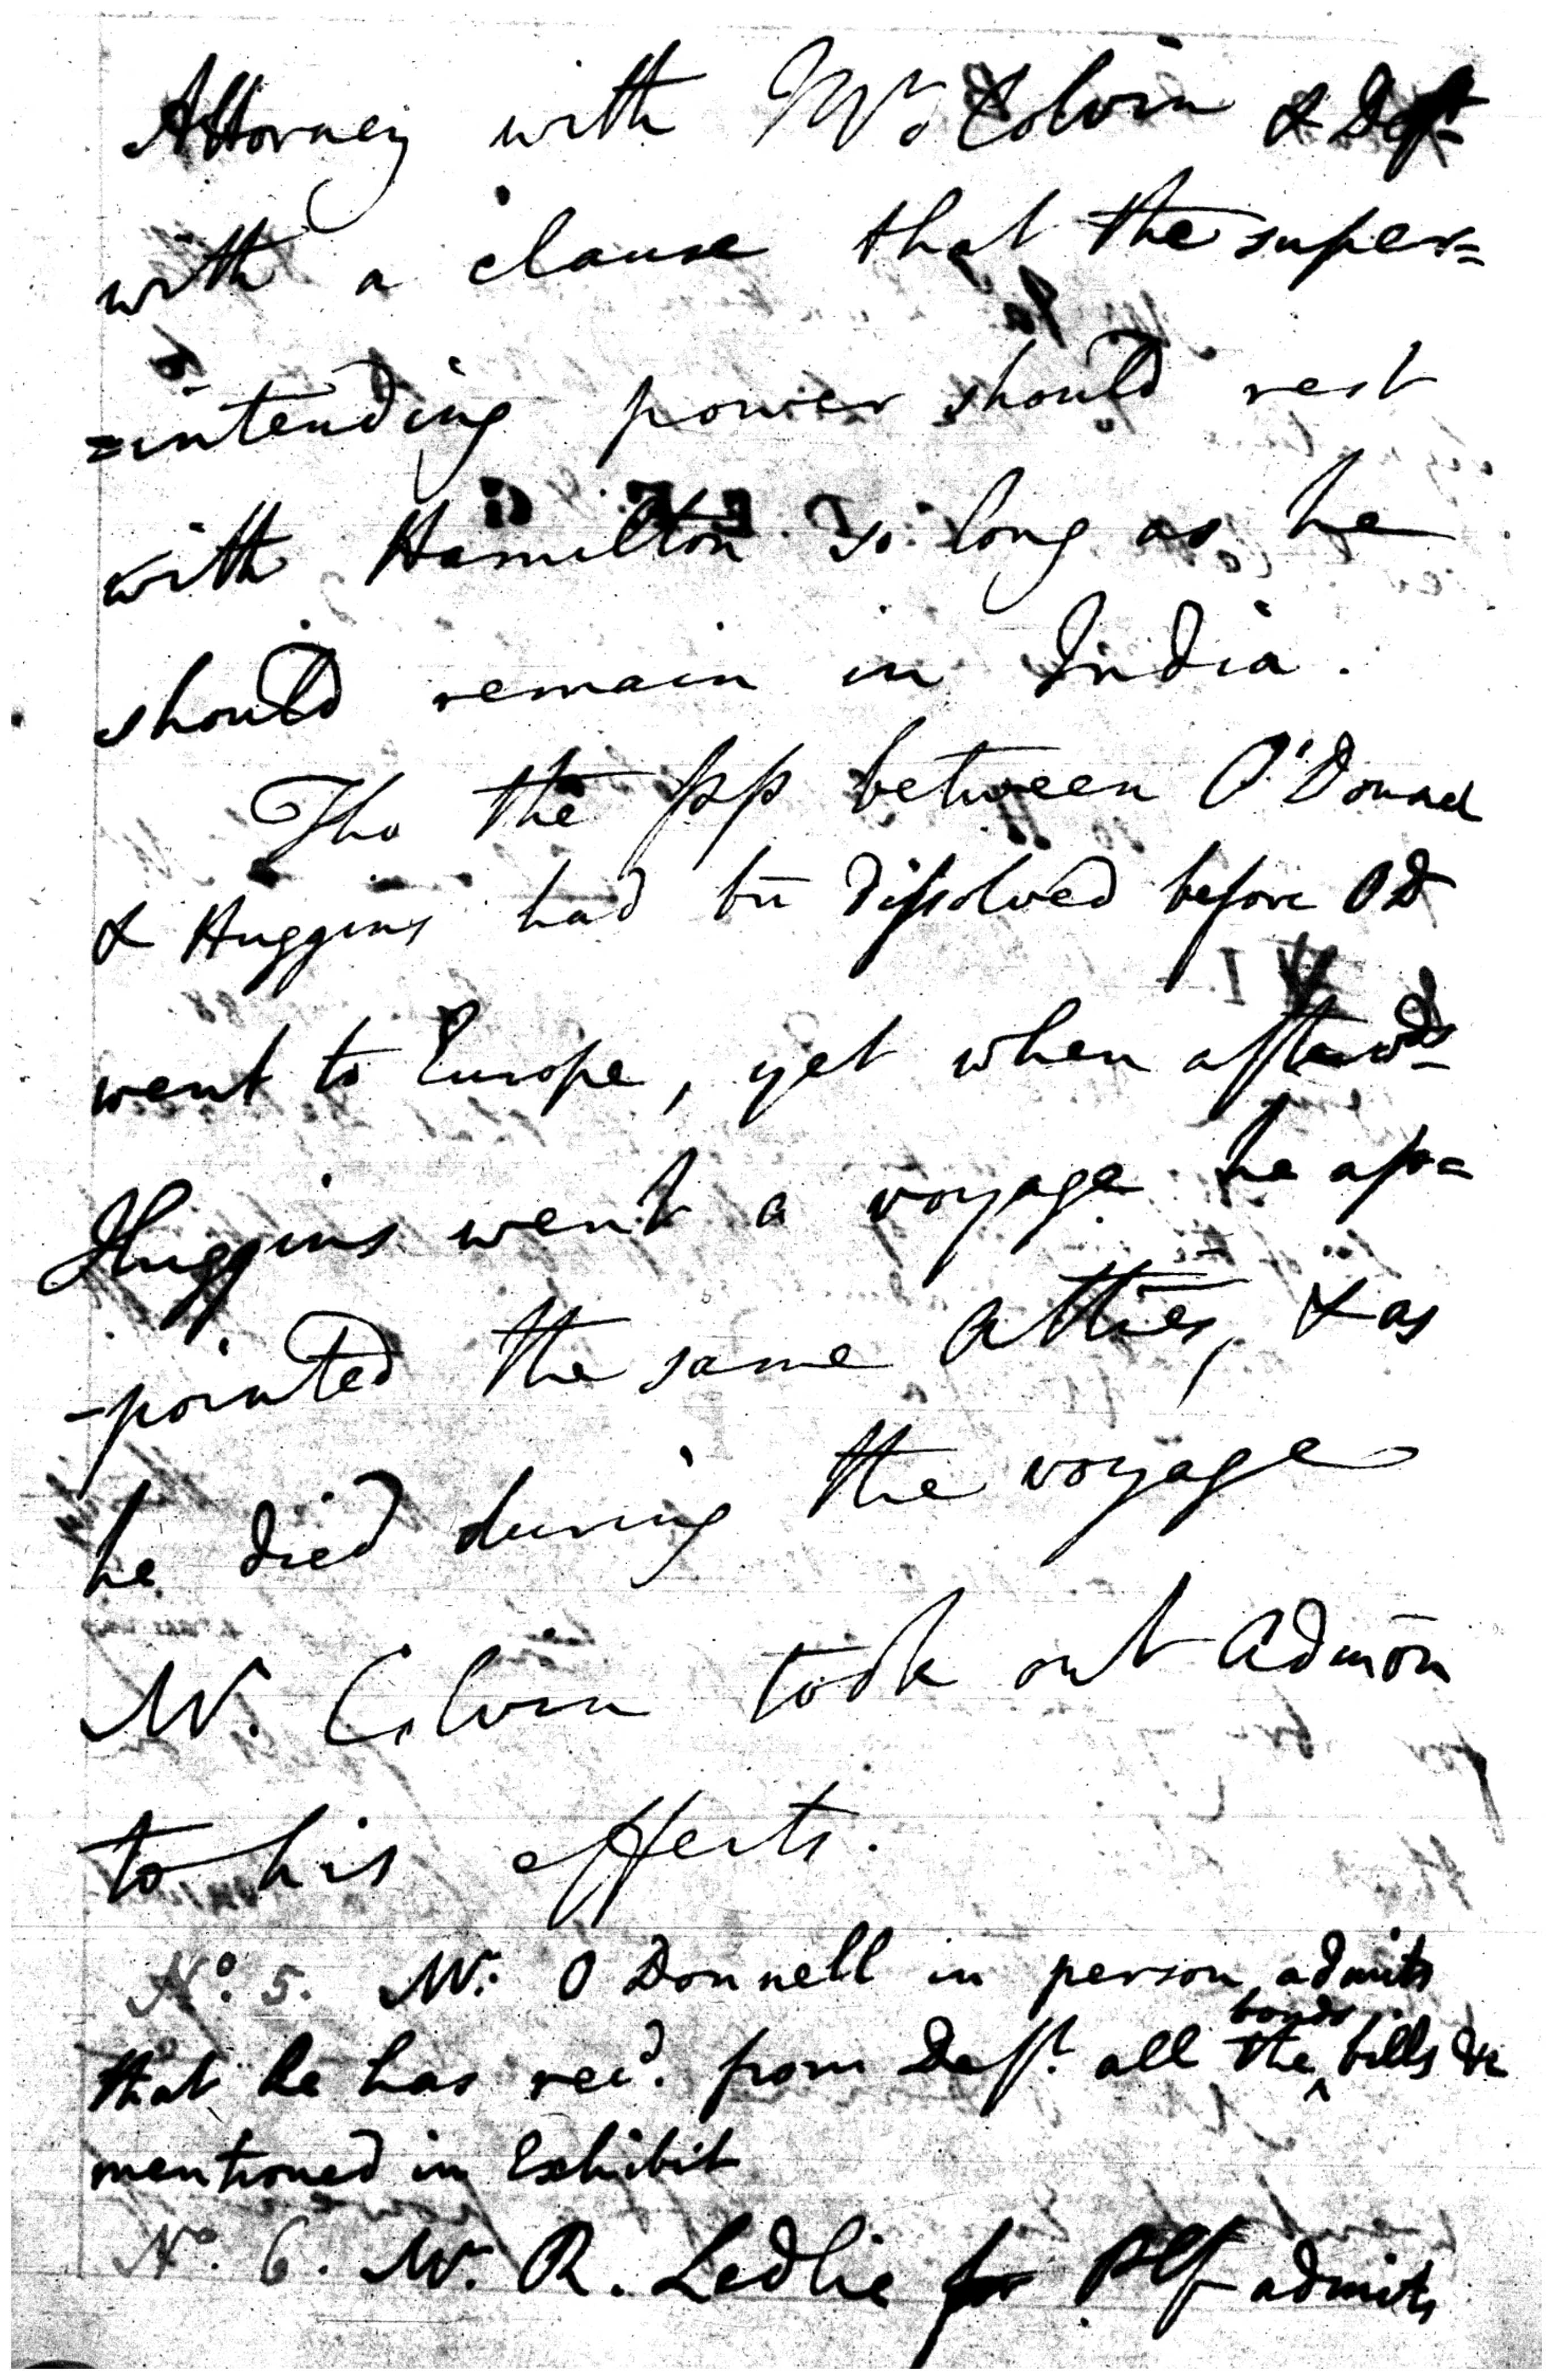 Attorney with Mr. Colvin & Deft.
with a clause that the super=
=intending power should rest
with Hamilton so long as he
should remain in India.
Tho the ppp between O'Donnel
& Huggins had bn dissolved before OD
went to Europe, yet when afterwds
Huggins went a voyage he ap=
-pointed the same Atties, & as
he died during the voyage
Mr. Colvin took out Admon
to his effects.
No. 5. Mr. O Donnell in person admits
that he has recd. from Deft. all the bonds bills &c
mentioned in Exhibit
No. 6. Mr. R. Ledlie for Plf admits